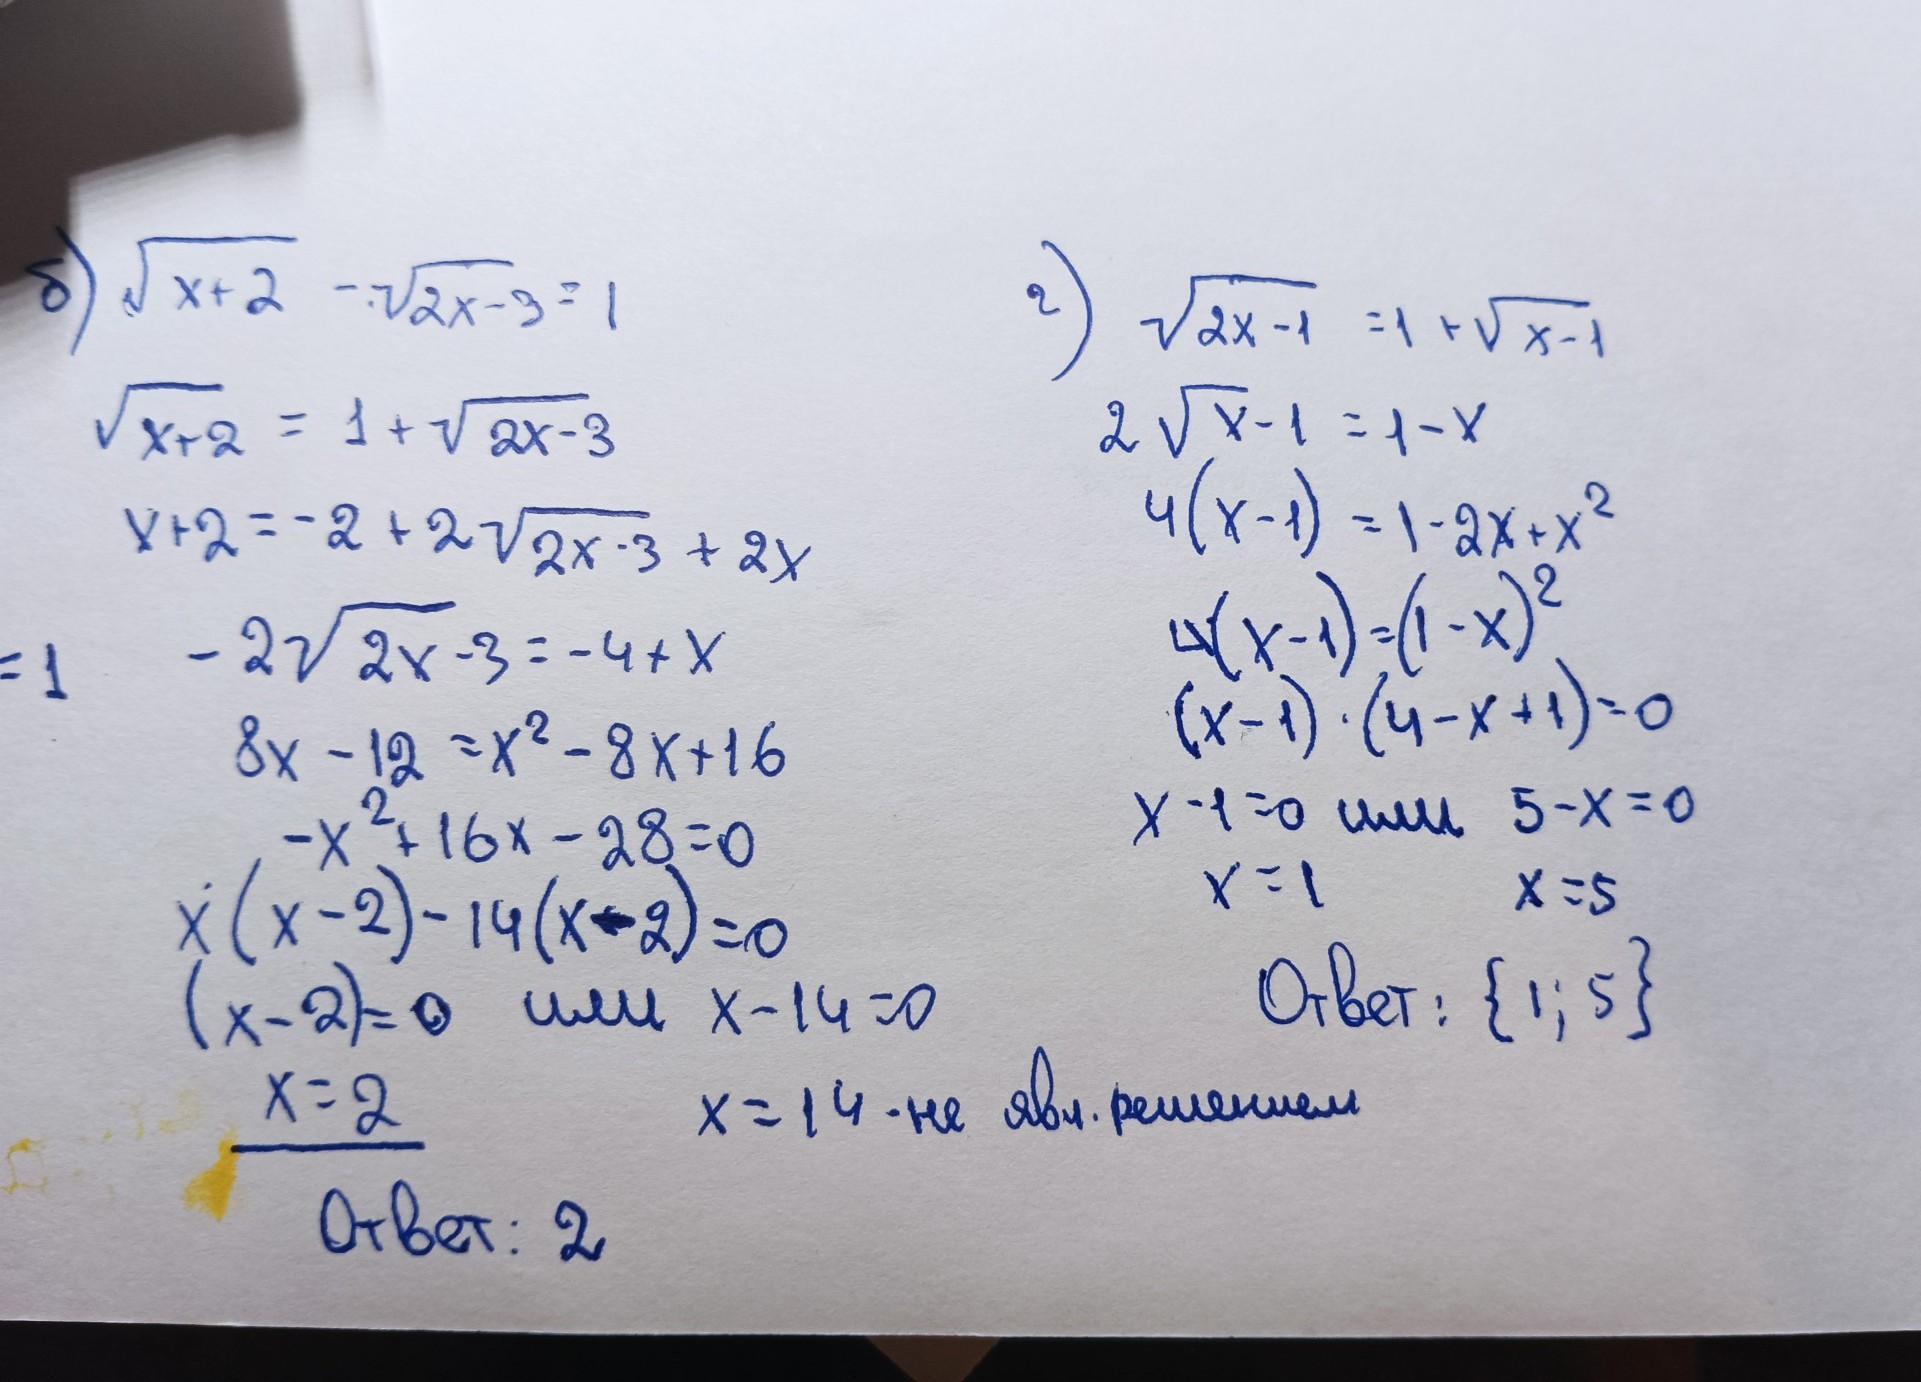 б) √x+2 - √2x-3 = 1
√x+2 = 1 + √2x-3
x+2 = -2 + 2√2x-3 + 2x
= 1
-2√2x-3 = -4+x
8x - 12 = x² - 8x + 16
-x² + 16x - 28 = 0
x(x-2) - 14(x-2) = 0
(x-2) = 0 или x-14=0
x = 2
x = 14 - не явл. решением
Ответ: 2
г) √2x-1 = 1 + √x-1
2√x-1 = 1-x
4(x-1) = 1-2x+x²
4(x-1) = (1-x)²
(x-1)·(4-x+1)=0
x-1=0 или 5-x=0
x=1 x=5
Ответ: {1; 5}